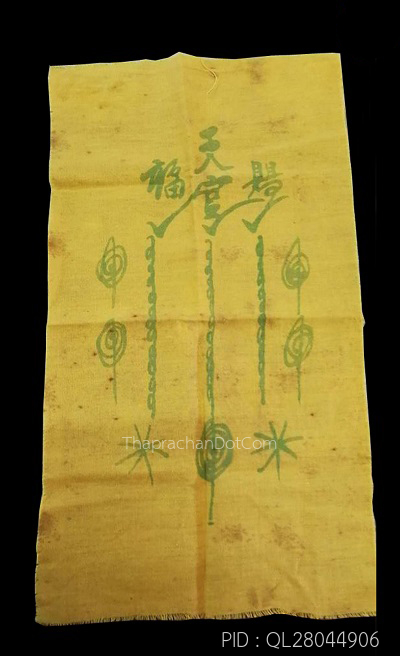 天
福 官 賜
ThaprachanDotCom
PID : QL28044906